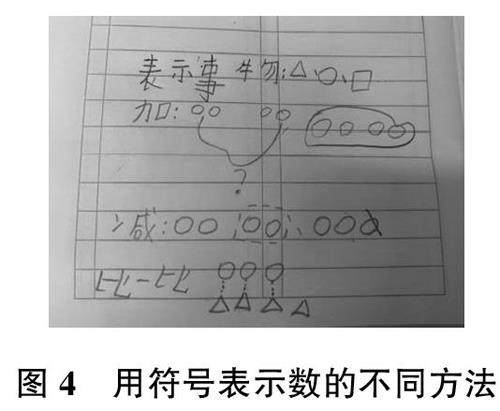 表示事物:△、○、□
加:○○ ○○ ○○○○
?
减:○○○○、○○○
比一比 ○○○
△△△△
图4 用符号表示数的不同方法